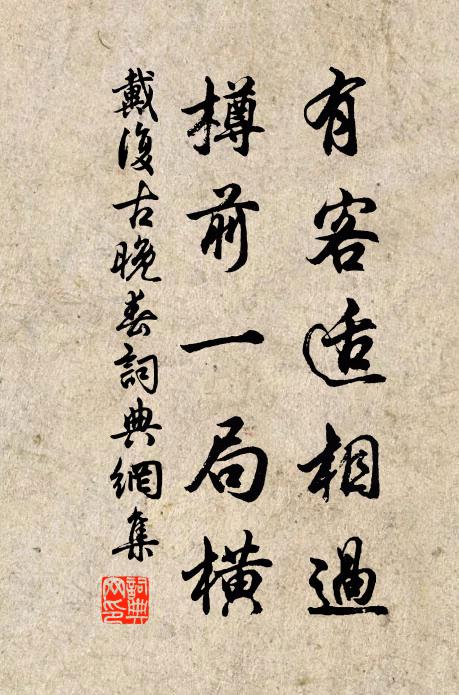 有客适相過
樽前一局橫
戴復古晚春詞典網集
詞典网印